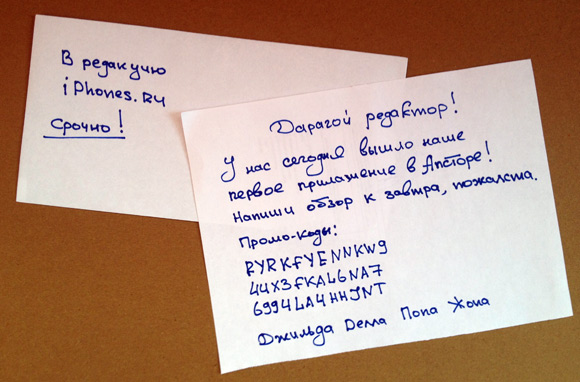 В редакцию
iPhones.ru
Срочно!
Дарагой редактор!
У нас сегодня вышло наше
первое прилажение в Апсторе!
Напиши обзор к завтра, пожалста.
Промо-коды:
RYRKFYENNKW9
44X3FKAL6NA7
6994LA4HHJNT
Джильда Делла Попа Жопа